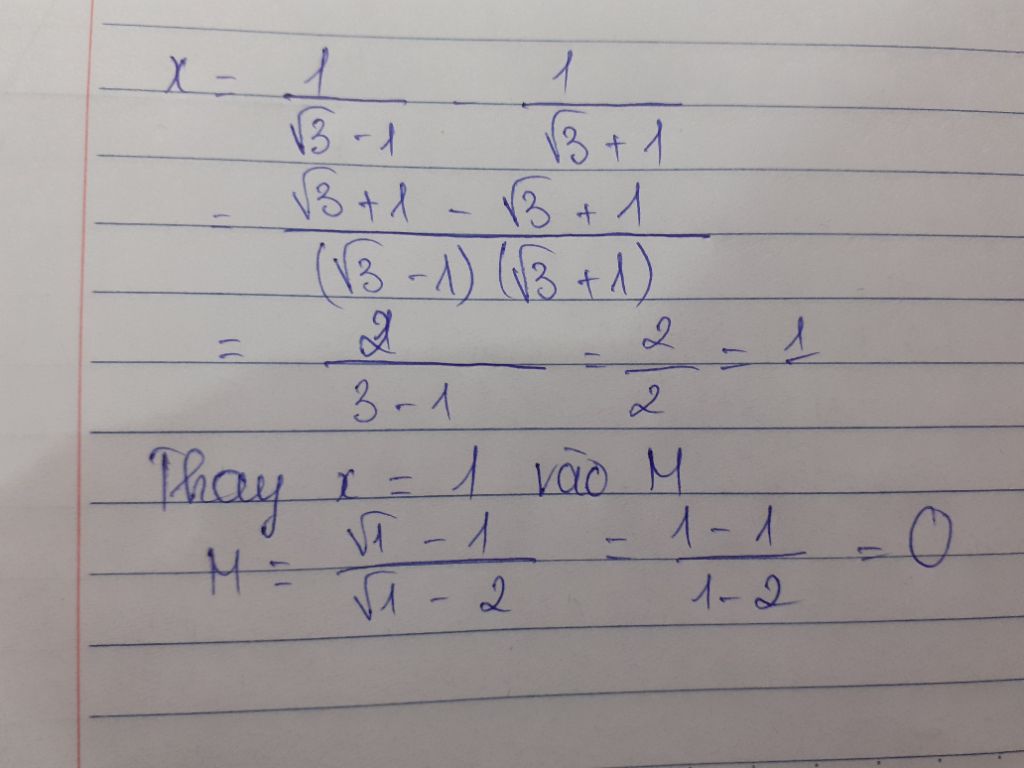 x = 1/(√3 - 1) - 1/(√3 + 1)
= (√3 + 1 - √3 + 1)/((√3 - 1)(√3 + 1))
= 2/(3 - 1) = 2/2 = 1
Thay x = 1 vào M
M = (√1 - 1)/(√1 - 2) = (1 - 1)/(1 - 2) = 0